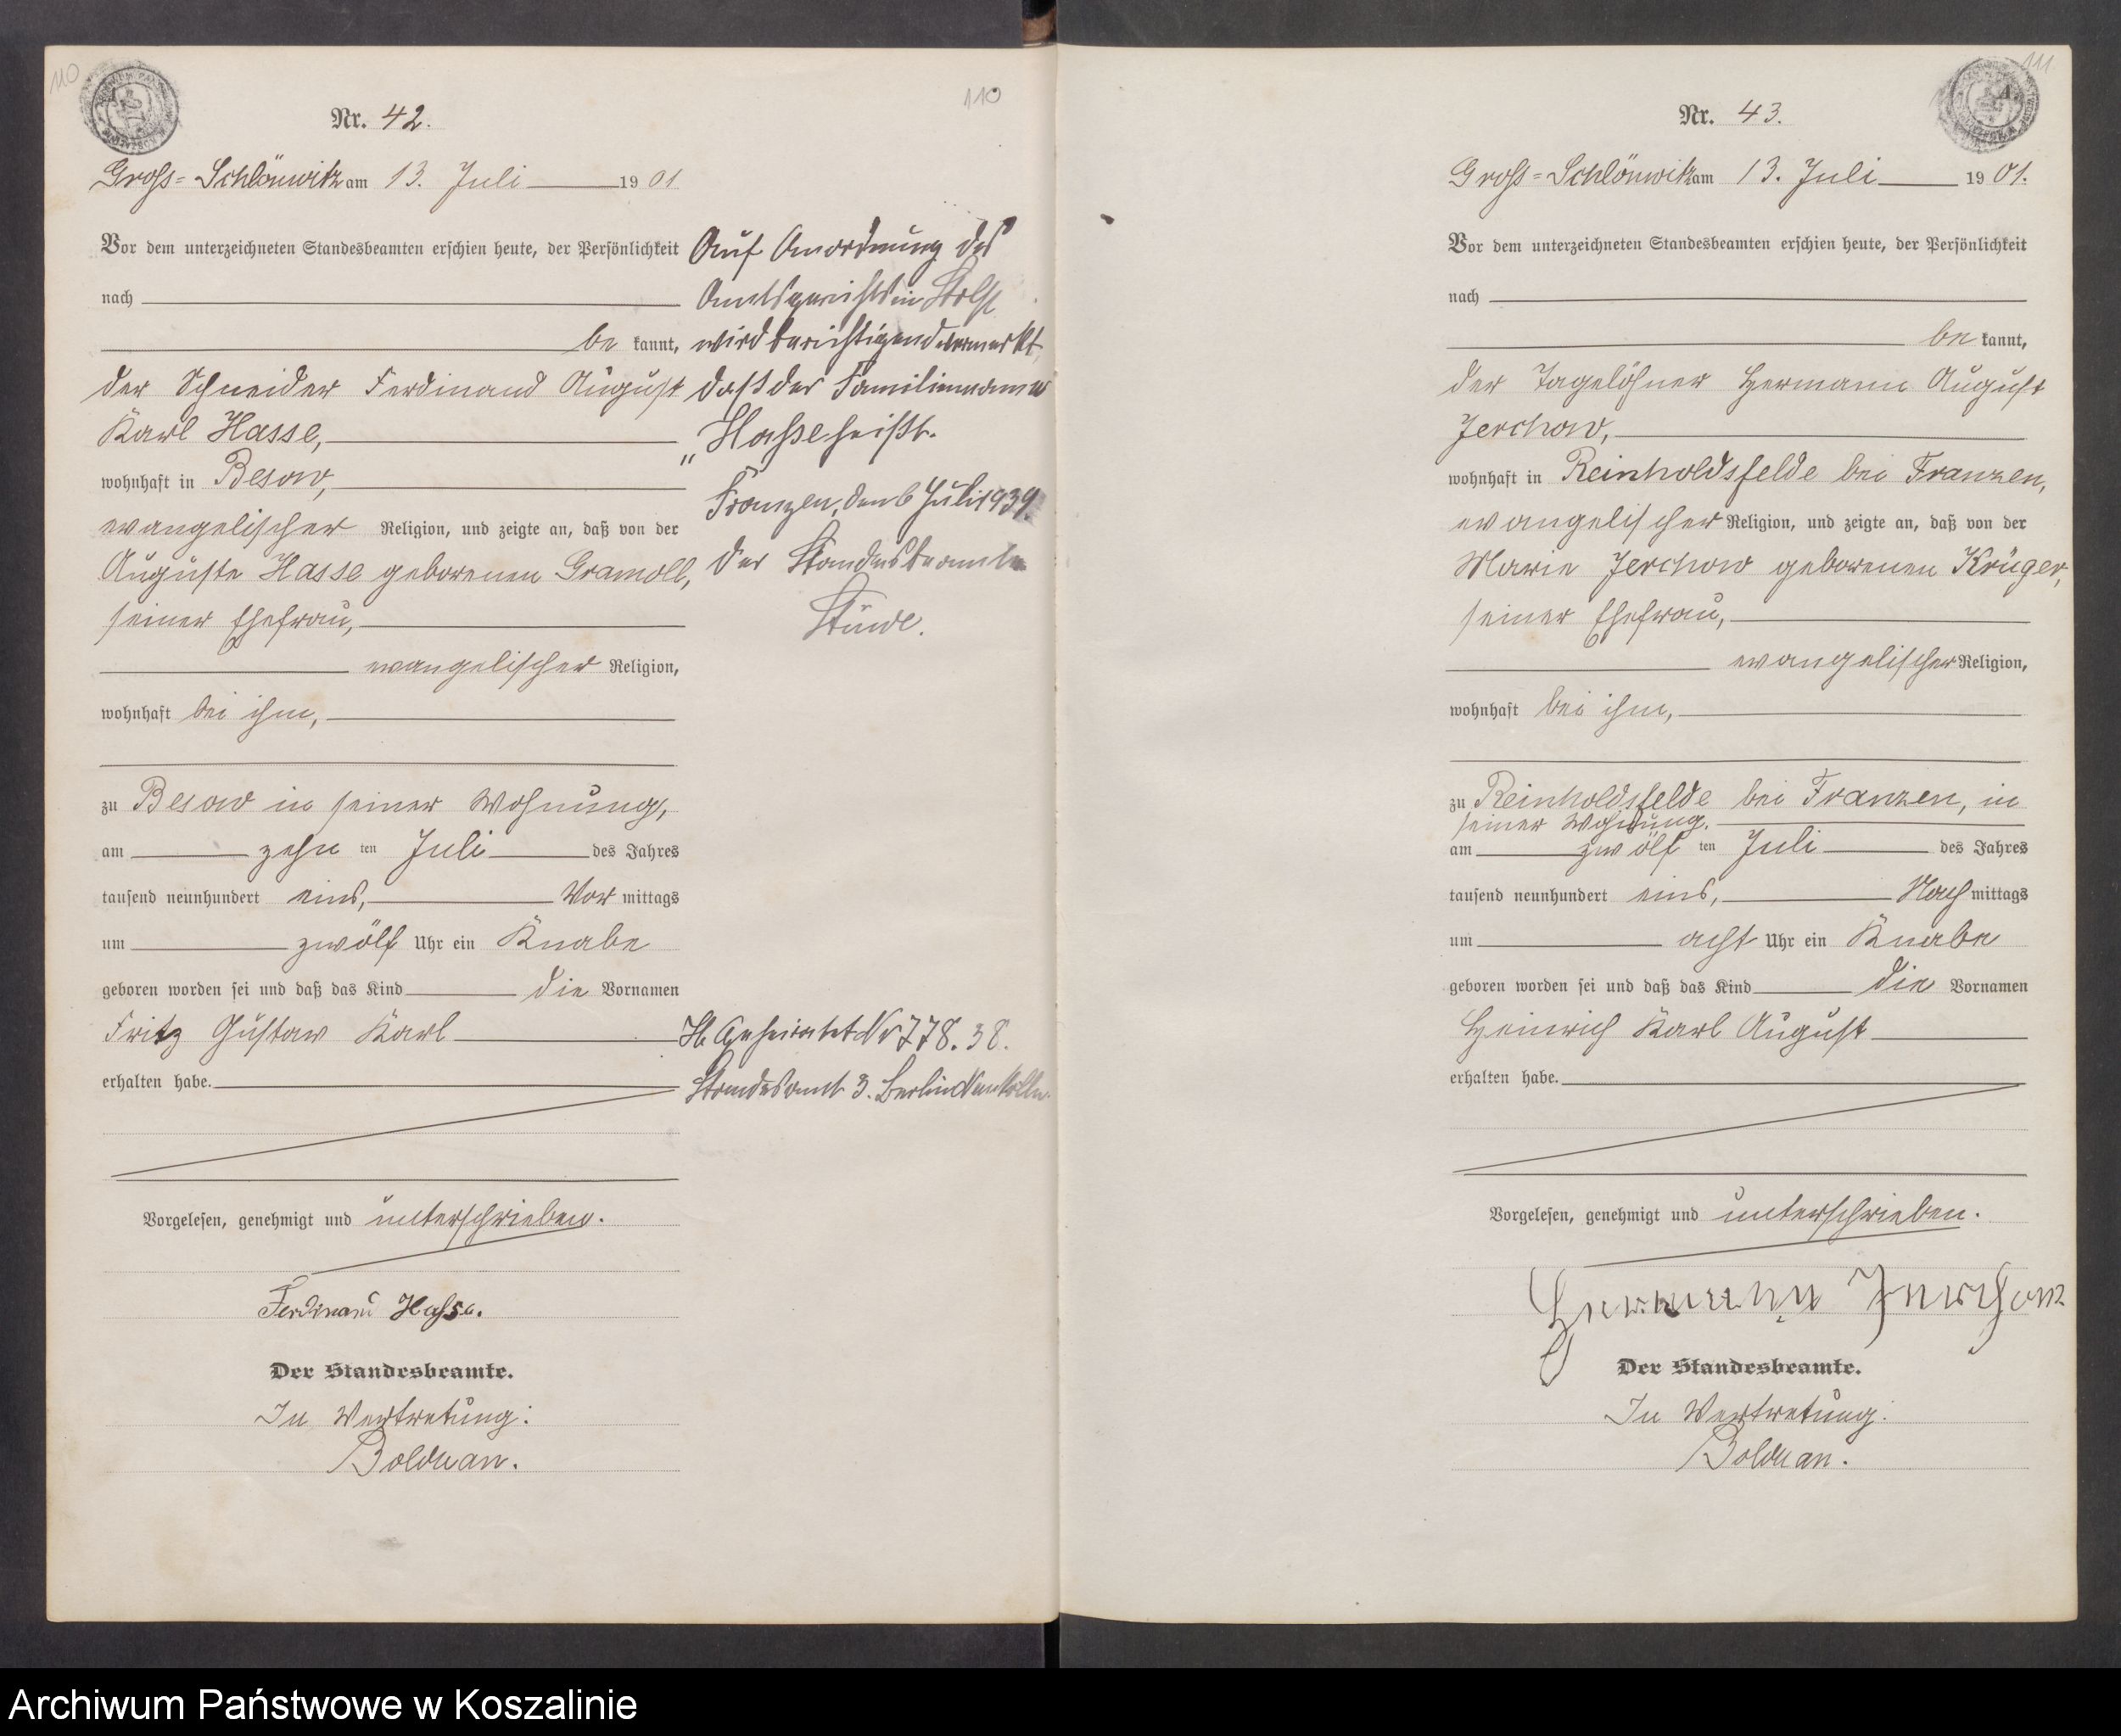 110
110
Nr. 42.
Gross=Schlönwitz am 13. Juli 1901
Vor dem unterzeichneten Standesbeamten erschien heute, der Persönlichkeit
nach
be kannt,
der Schneider Ferdinand August
Karl Hasse,
wohnhaft in Besow,
evangelischer Religion, und zeigte an, daß von der
Auguste Hasse geborenen Gramoll,
seiner Ehefrau,
evangelischer Religion,
wohnhaft bei ihm,
zu Besow in seiner Wohnung,
am zehn ten Juli des Jahres
tausend neunhundert eins, Vor mittags
um zwölf Uhr ein Knabe
geboren worden sei und daß das Kind die Vornamen
Fritz Gustav Karl
erhalten habe.
Vorgelesen, genehmigt und unterschrieben.
Ferdinand Hasse.
Der Standesbeamte.
In Vertretung:
Bolduan.
Auf Anordnung des
Amtsgerichts in Stolp
wird berichtigend vermerkt,
daß der Familienname
„Haße heißt.
Franzen, den 6 Juli 1939.
Der Standesbeamte
Stüwe.
Geheiratet Nr 778.38.
Standesamt 3. Berlin Neukölln.
111
Nr. 43.
Gross=Schlönwitz am 13. Juli 1901.
Vor dem unterzeichneten Standesbeamten erschien heute, der Persönlichkeit
nach
be kannt,
der Tagelöhner Hermann August
Jerchow,
wohnhaft in Reinholdsfelde bei Franzen,
evangelischer Religion, und zeigte an, daß von der
Marie Jerchow geborenen Krüger,
seiner Ehefrau,
evangelischer Religion,
wohnhaft bei ihm,
zu Reinholdsfelde bei Franzen, in
seiner Wohnung.
am zwölf ten Juli des Jahres
tausend neunhundert eins, Nach mittags
um acht Uhr ein Knabe
geboren worden sei und daß das Kind die Vornamen
Heinrich Karl August
erhalten habe.
Vorgelesen, genehmigt und unterschrieben.
Hermann Jerchow
Der Standesbeamte.
In Vertretung:
Bolduan.
Archiwum Państwowe w Koszalinie